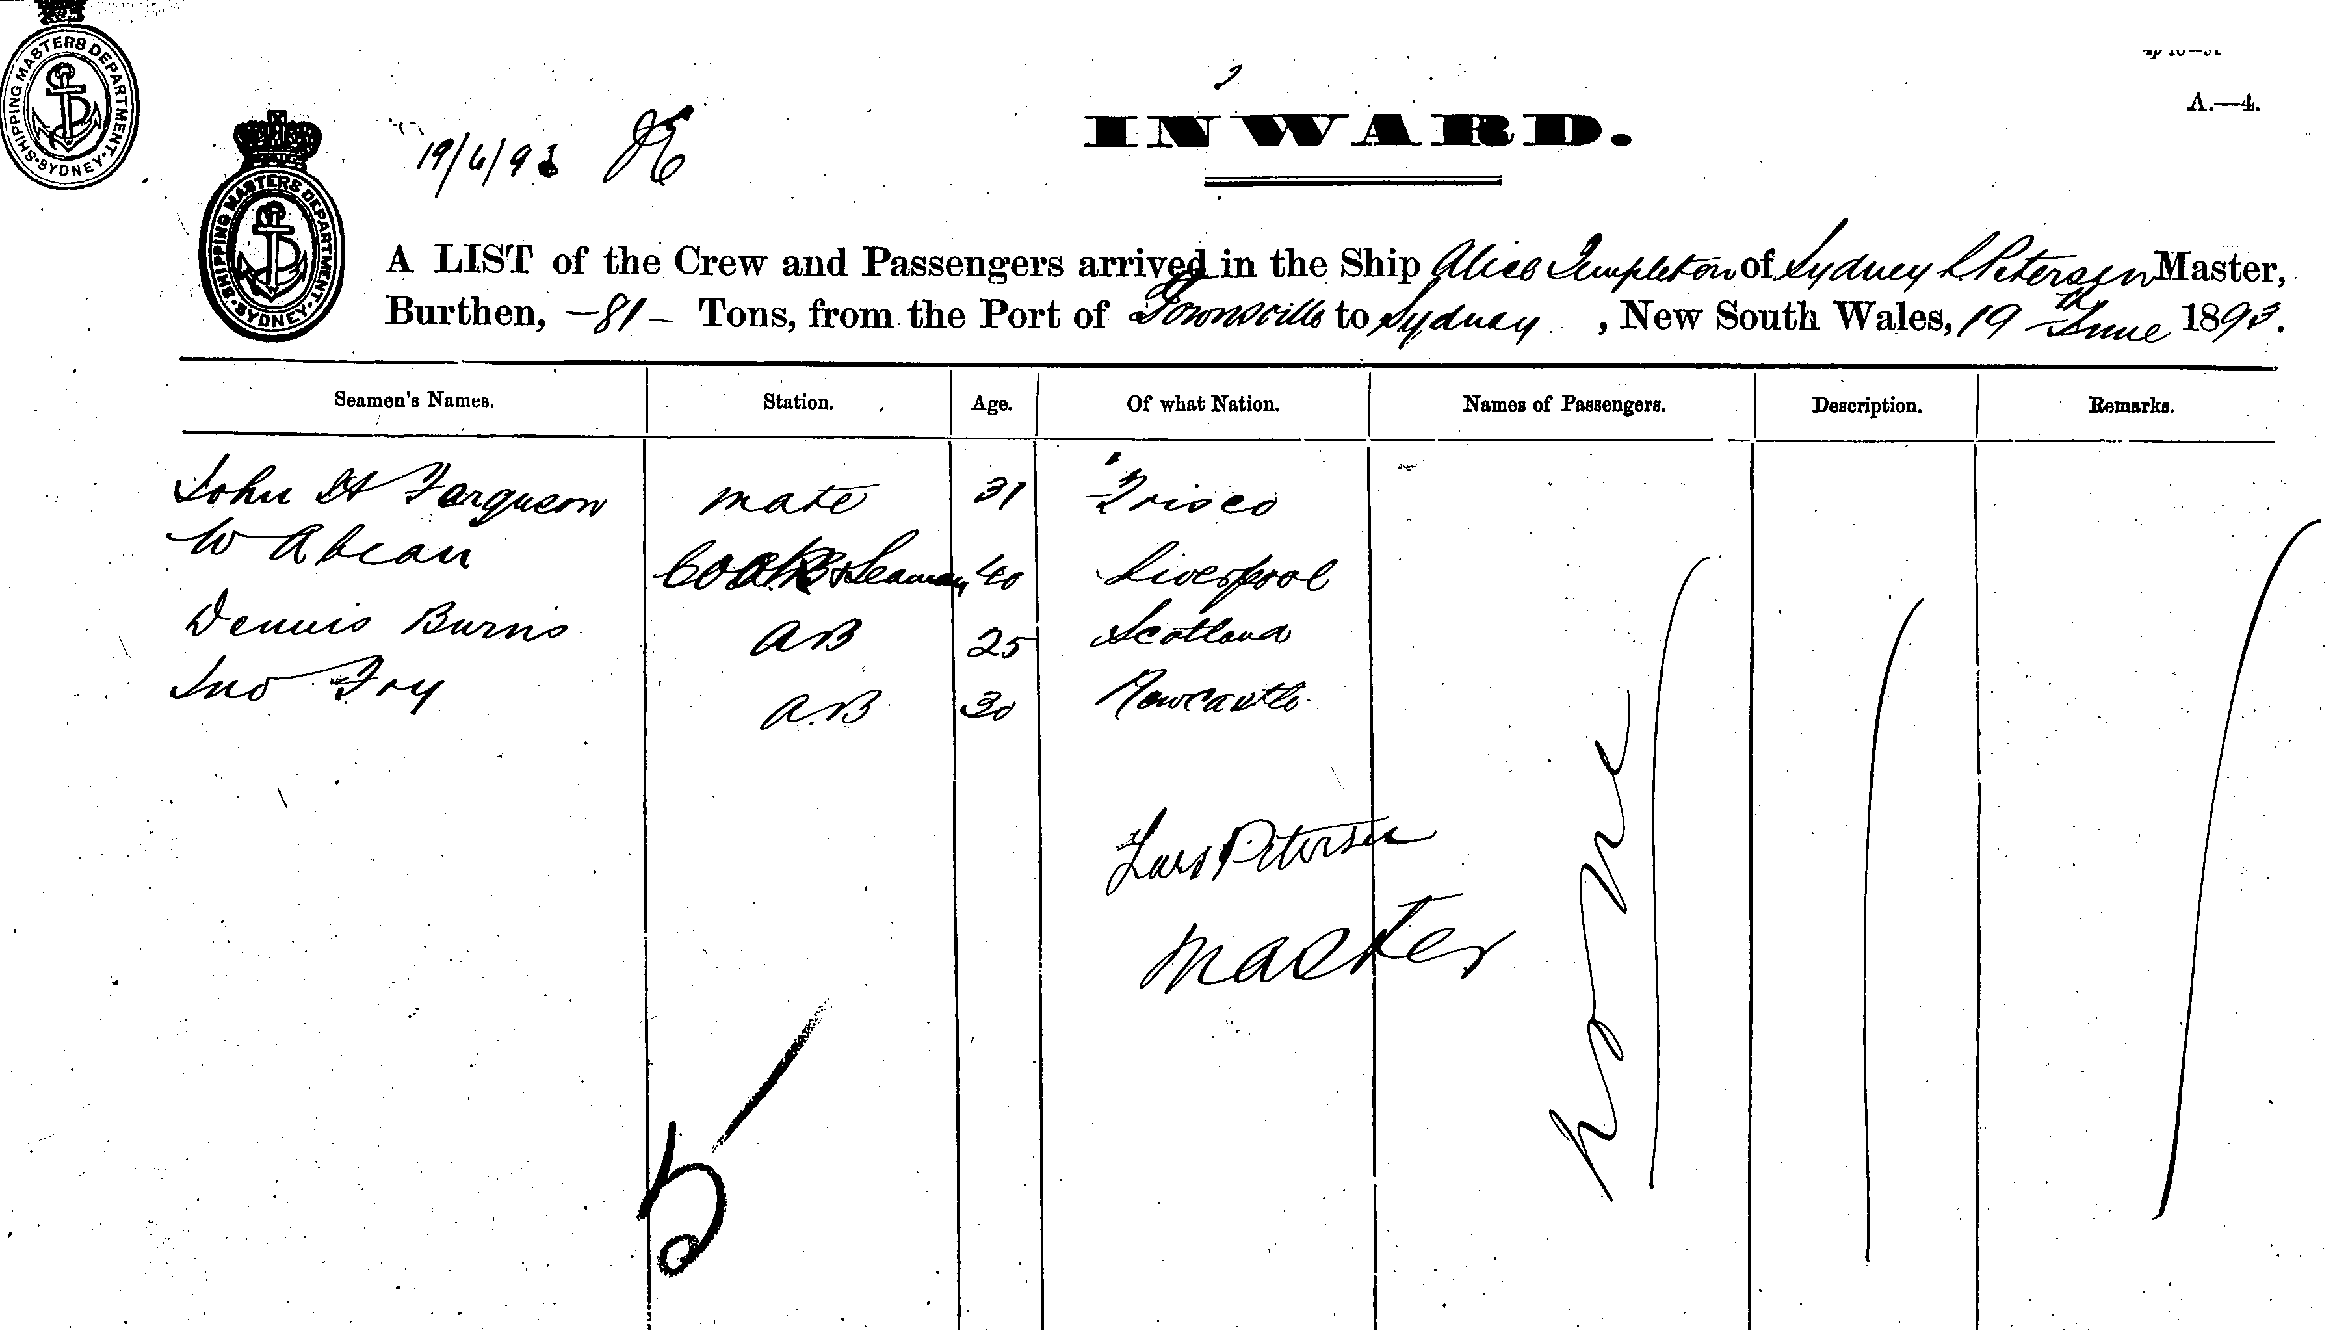 SHIPPING MASTERS DEPARTMENT. SYDNEY
A.—4.
INWARD.
19/6/93
SHIPPING MASTERS DEPARTMENT. SYDNEY.
A LIST of the Crew and Passengers arrived in the Ship Alice Templeton of Sydney L Petersen Master,
Burthen, -81- Tons, from the Port of Townsville to Sydney, New South Wales, 19th June 1893.
Seamen's Names. Station. Age. Of what Nation. Names of Passengers. Description. Remarks.
John H Ferguson mate 31 Frisco
W Abean Cook & Seaman 40 Liverpool
Dennis Burns AB 25 Scotland
Jno Foy A.B 30 Newcastle
none
Lars Petersen
Master
5